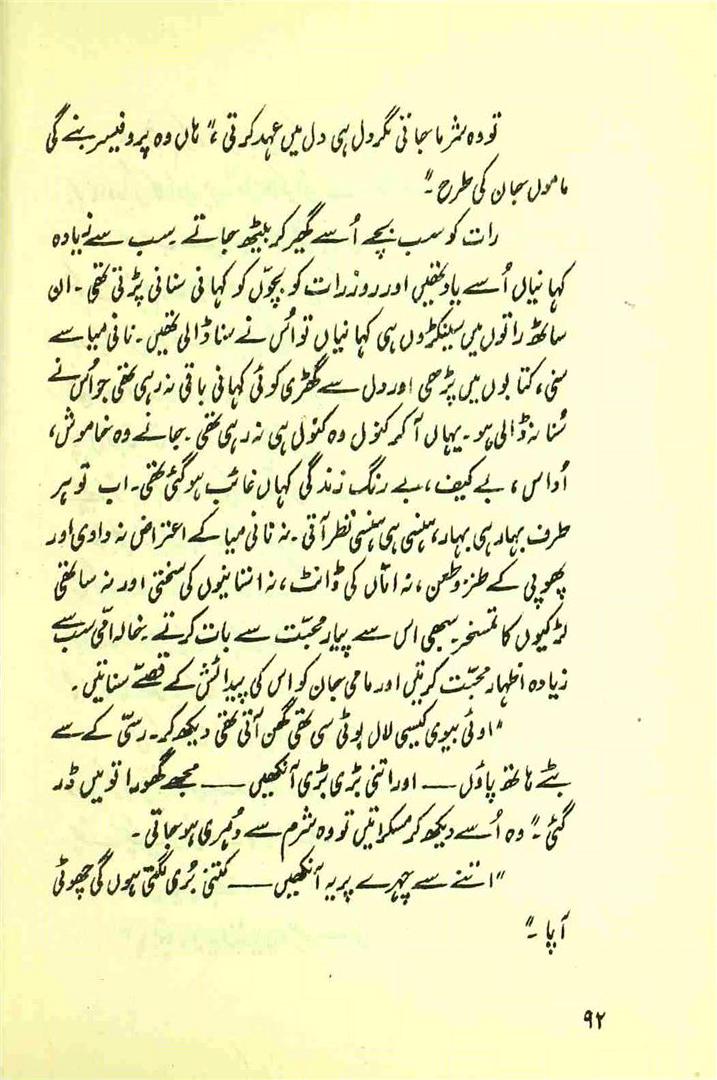 تو وہ شرما جاتی مگر دل ہی دل میں عہد کرتی، "ہاں وہ پروفیسر بنے گی
ماموں جان کی طرح۔"
رات کو سب بچے اُسے گھیر کر بیٹھ جاتے۔ سب سے زیادہ
کہانیاں اُسے یاد تھیں اور روز رات کو بچوّں کو کہانی سنانی پڑتی تھی۔ ان
ساٹھ راتوں میں سینکڑوں ہی کہانیاں تو اُس نے سنا ڈالی تھیں۔ نانی میا سے
سنی، کتابوں میں پڑھی اور دل سے گھڑی کوئی کہانی باقی نہ رہی تھی جو اُس نے
سُنا نہ ڈالی ہو۔ یہاں آ کر کنول وہ کنول ہی نہ رہی تھی۔ جانے وہ خاموش،
اُداس، بے کیف، بے رنگ زندگی کہاں غائب ہو گئی تھی۔ اب تو ہر
طرف بہار ہی بہار، ہنسی ہی ہنسی نظر آتی۔ نہ نانی میا کے اعتراض نہ دادی اور
پھوپی کے طنز و طعن، نہ اماّں کی ڈانٹ، نہ استانیوں کی سختی اور نہ ساتھی
لڑکیوں کا تمسخر۔ سبھی اس سے پیار محبتّ سے بات کرتے۔ خالہ امّی سب سے
زیادہ اظہار محبتّ کرتیں اور مامی جان کو اس کی پیدائش کے قصےّ سناتیں۔
"اوئی بیوی کیسی لال بوٹی سی تھی گھن آتی تھی دیکھ کر۔ رسّی کے سے
بٹے ہاتھ پاؤں —— اور اتنی بڑی بڑی آنکھیں —— مجھے گھورا تو میں ڈر
گئی۔" وہ اُسے دیکھ کر مسکراتیں تو وہ شرم سے دُہری ہو جاتی۔
"اتنے سے چہرے پر یہ آنکھیں —— کتنی بُری لگتی ہوں گی چھوٹی
آپا۔"
۹۲